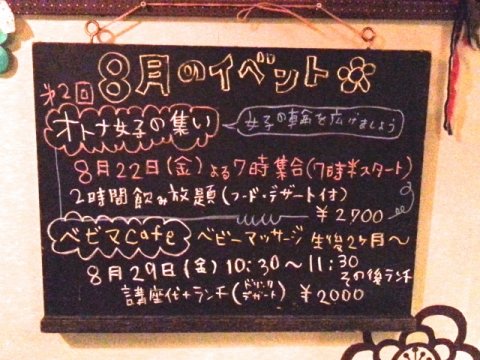 8月のイベント
第2回
オトナ女子の集い
女子の輪を広げましょう
8月22日(金)よる7時集合(7時半スタート)
2時間飲み放題(フード・デザート付)
¥2700
ベビマcafe ベビーマッサージ 生後2ヶ月〜
8月29日(金)10:30〜11:30
その後ランチ
講座代+ランチ(ドリンク デザート) ¥2000